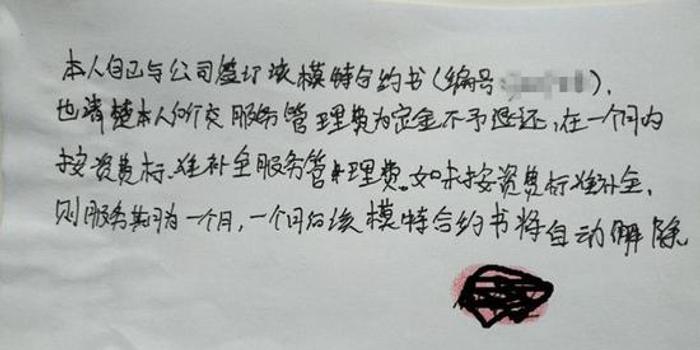 本人自己与公司签订该模特合约书(编号 ),
也清楚本人所交服务管理费为定金不予退还,在一个月内
按资费标准补全服务管理费。如未按资费标准补全,
则服务期为一个月,一个月后该模特合约书将自动解除